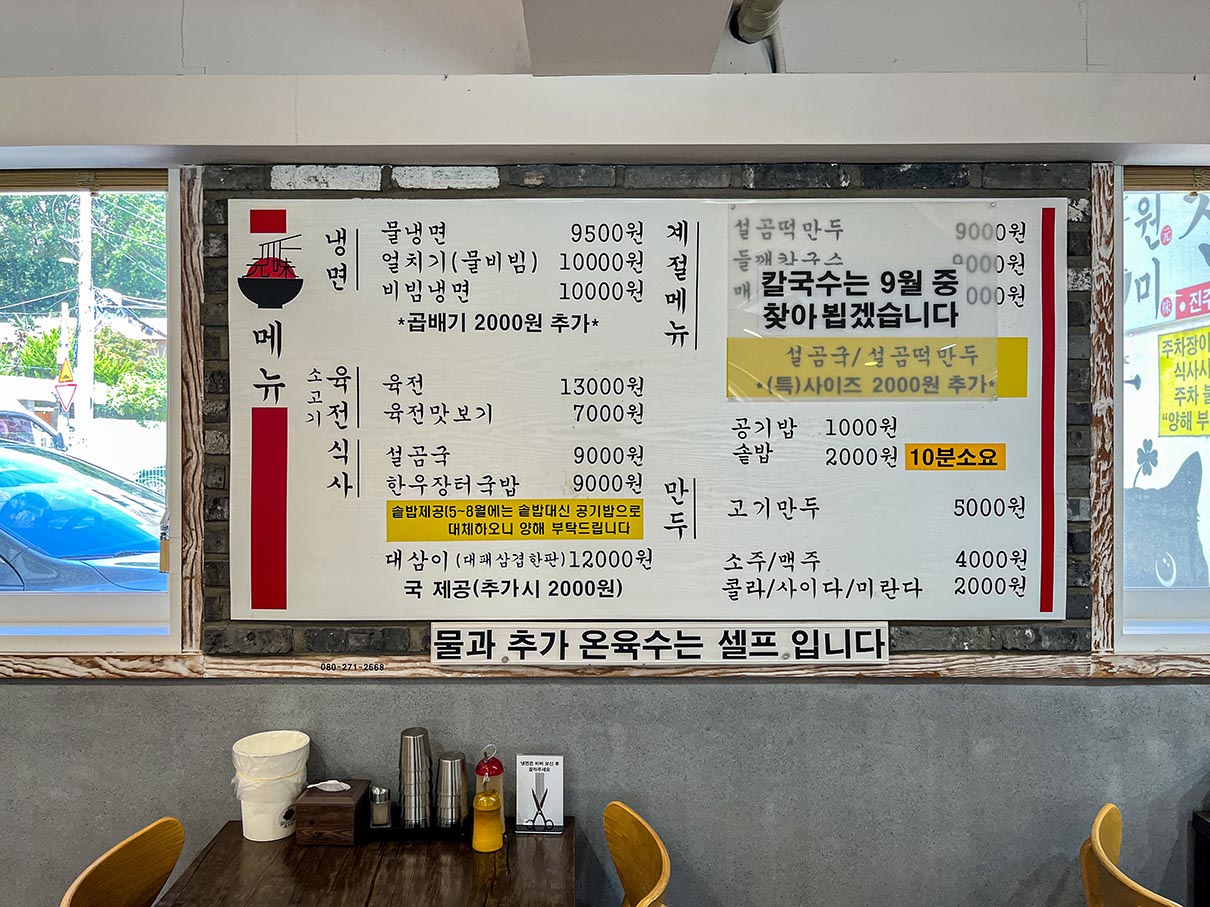 元味
메뉴
냉면
물냉면 9500원
얼치기(물비빔) 10000원
비빔냉면 10000원
*곱배기 2000원 추가*
소고기 육전
육전 13000원
육전맛보기 7000원
식사
설곰국 9000원
한우장터국밥 9000원
솥밥제공(5~8월에는 솥밥대신 공기밥으로
대체하오니 양해 부탁드립니다
대삼이 (대패삼겹한판) 12000원
국 제공(추가시 2000원)
계절메뉴
설곰떡만두 9000원
들깨칼국수 9000원
매 000원
칼국수는 9월 중
찾아뵙겠습니다
설곰국/설곰떡만두
*(특)사이즈 2000원 추가*
공기밥 1000원
솥밥 2000원 10분소요
만두
고기만두 5000원
소주/맥주 4000원
콜라/사이다/미란다 2000원
물과 추가 온육수는 셀프 입니다
080-271-2668
냉면은 비비 보신 후
잘라주세요
원元
미味
진주
주차장이
식사시
주차 불
"양해 부